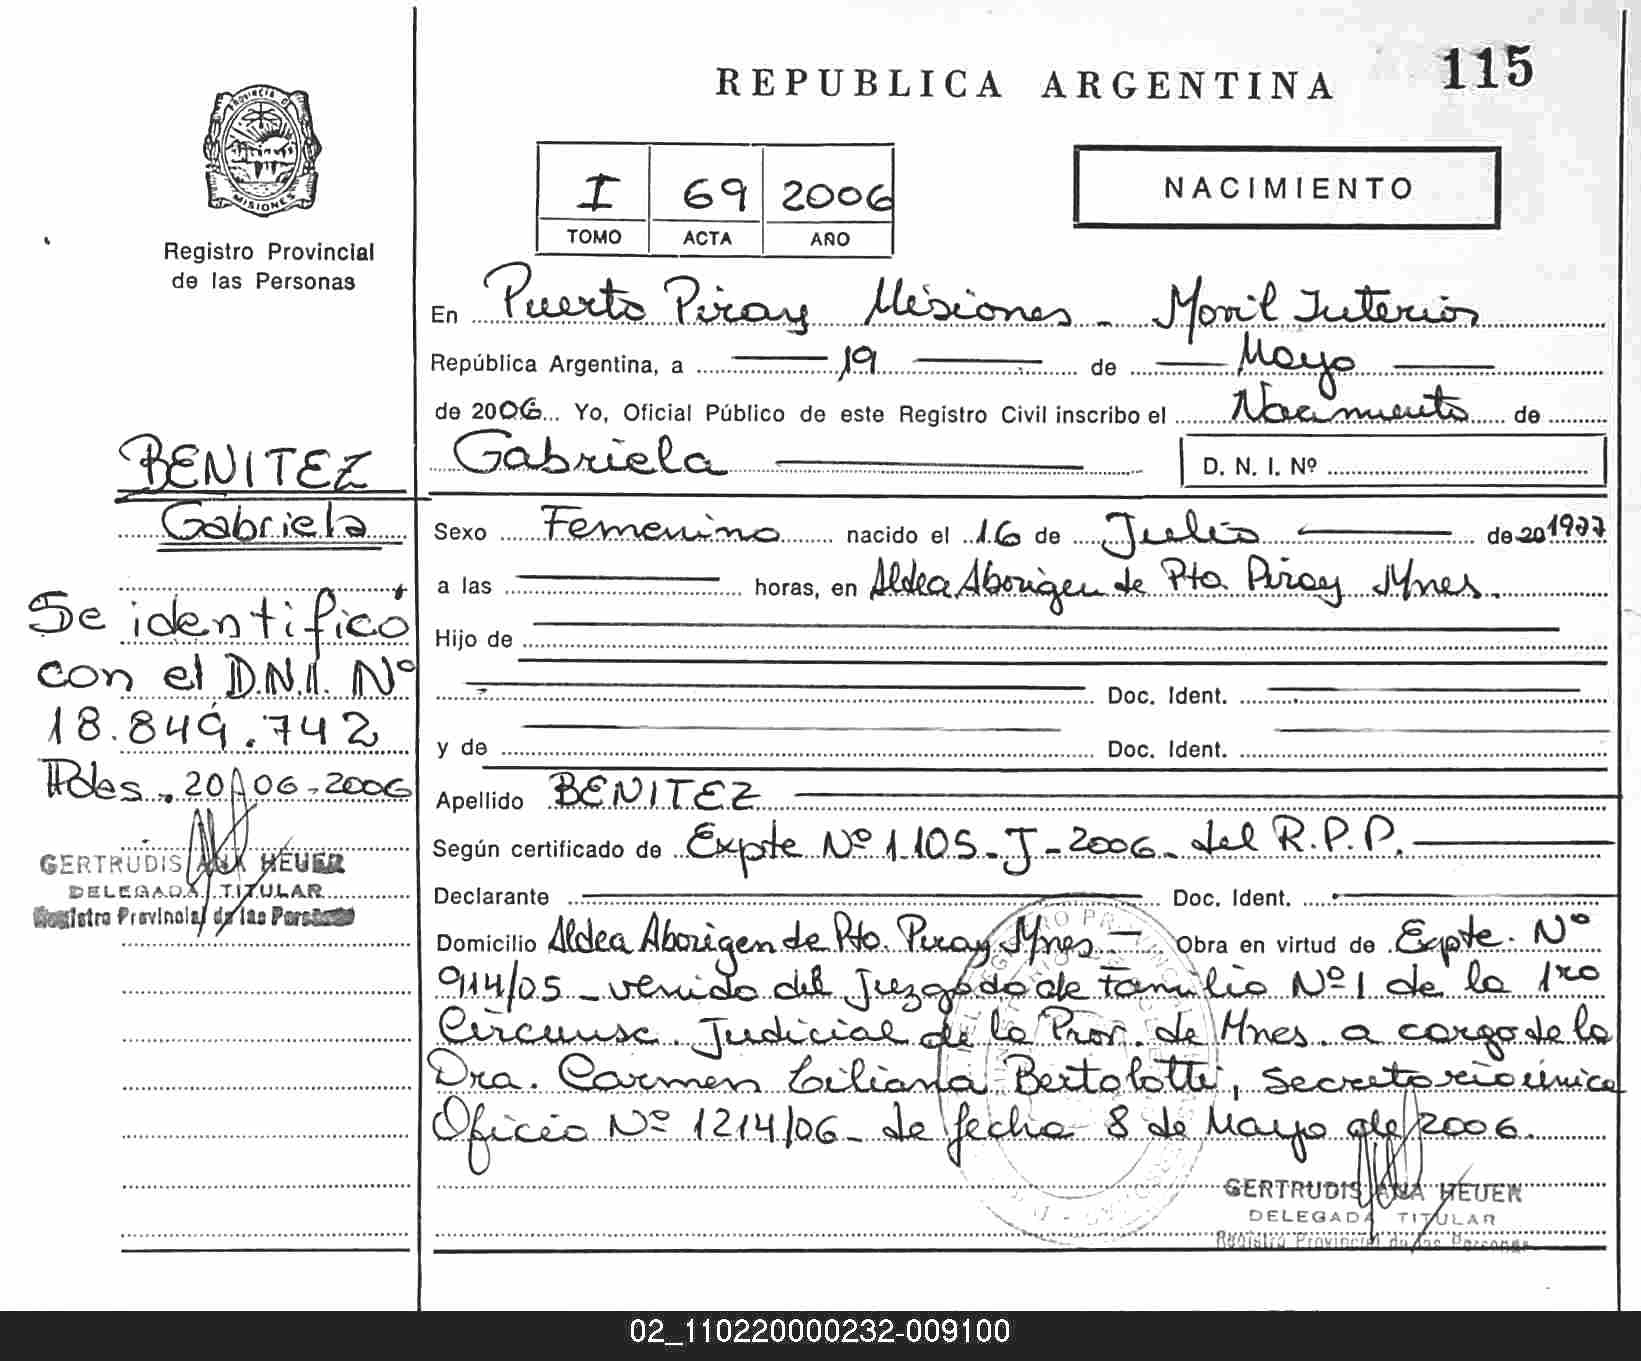 REPUBLICA ARGENTINA
115
PROVINCIA DE MISIONES
Registro Provincial
de las Personas
I 69 2006
TOMO ACTA AÑO
NACIMIENTO
En Puerto Piray Misiones - Movil Interior
República Argentina, a 19 de Mayo
de 2006 Yo, Oficial Público de este Registro Civil inscribo el Nacimiento de
Gabriela D. N. I. Nº
Sexo Femenino nacido el 16 de Julio de 20 1977
a las horas, en Aldea Aborigen de Pto. Piray Mnes.
Hijo de
Doc. Ident.
y de Doc. Ident.
Apellido BENITEZ
Según certificado de Expte Nº 1.105-J-2006- del R.P.P.
Declarante Doc. Ident.
Domicilio Aldea Aborigen de Pto. Piray Mnes - Obra en virtud de Expte. Nº
914/05 - venido del Juzgado de Familia Nº 1 de la 1ra
Circunsc. Judicial de la Prov. de Mnes. a cargo de la
Dra. Carmen Liliana Bertolotti, secretaria única
Oficio Nº 1214/06 - de fecha 8 de Mayo de 2006.
GERTRUDIS ANA HEUER
DELEGADA TITULAR
Registro Provincial de las Personas
BENITEZ
Gabriela
Se identificó
con el D.N.I. Nº
18.849.742
Pdas. 20-06-2006
GERTRUDIS ANA HEUER
DELEGADA TITULAR
Registro Provincial de las Personas
02_110220000232-009100